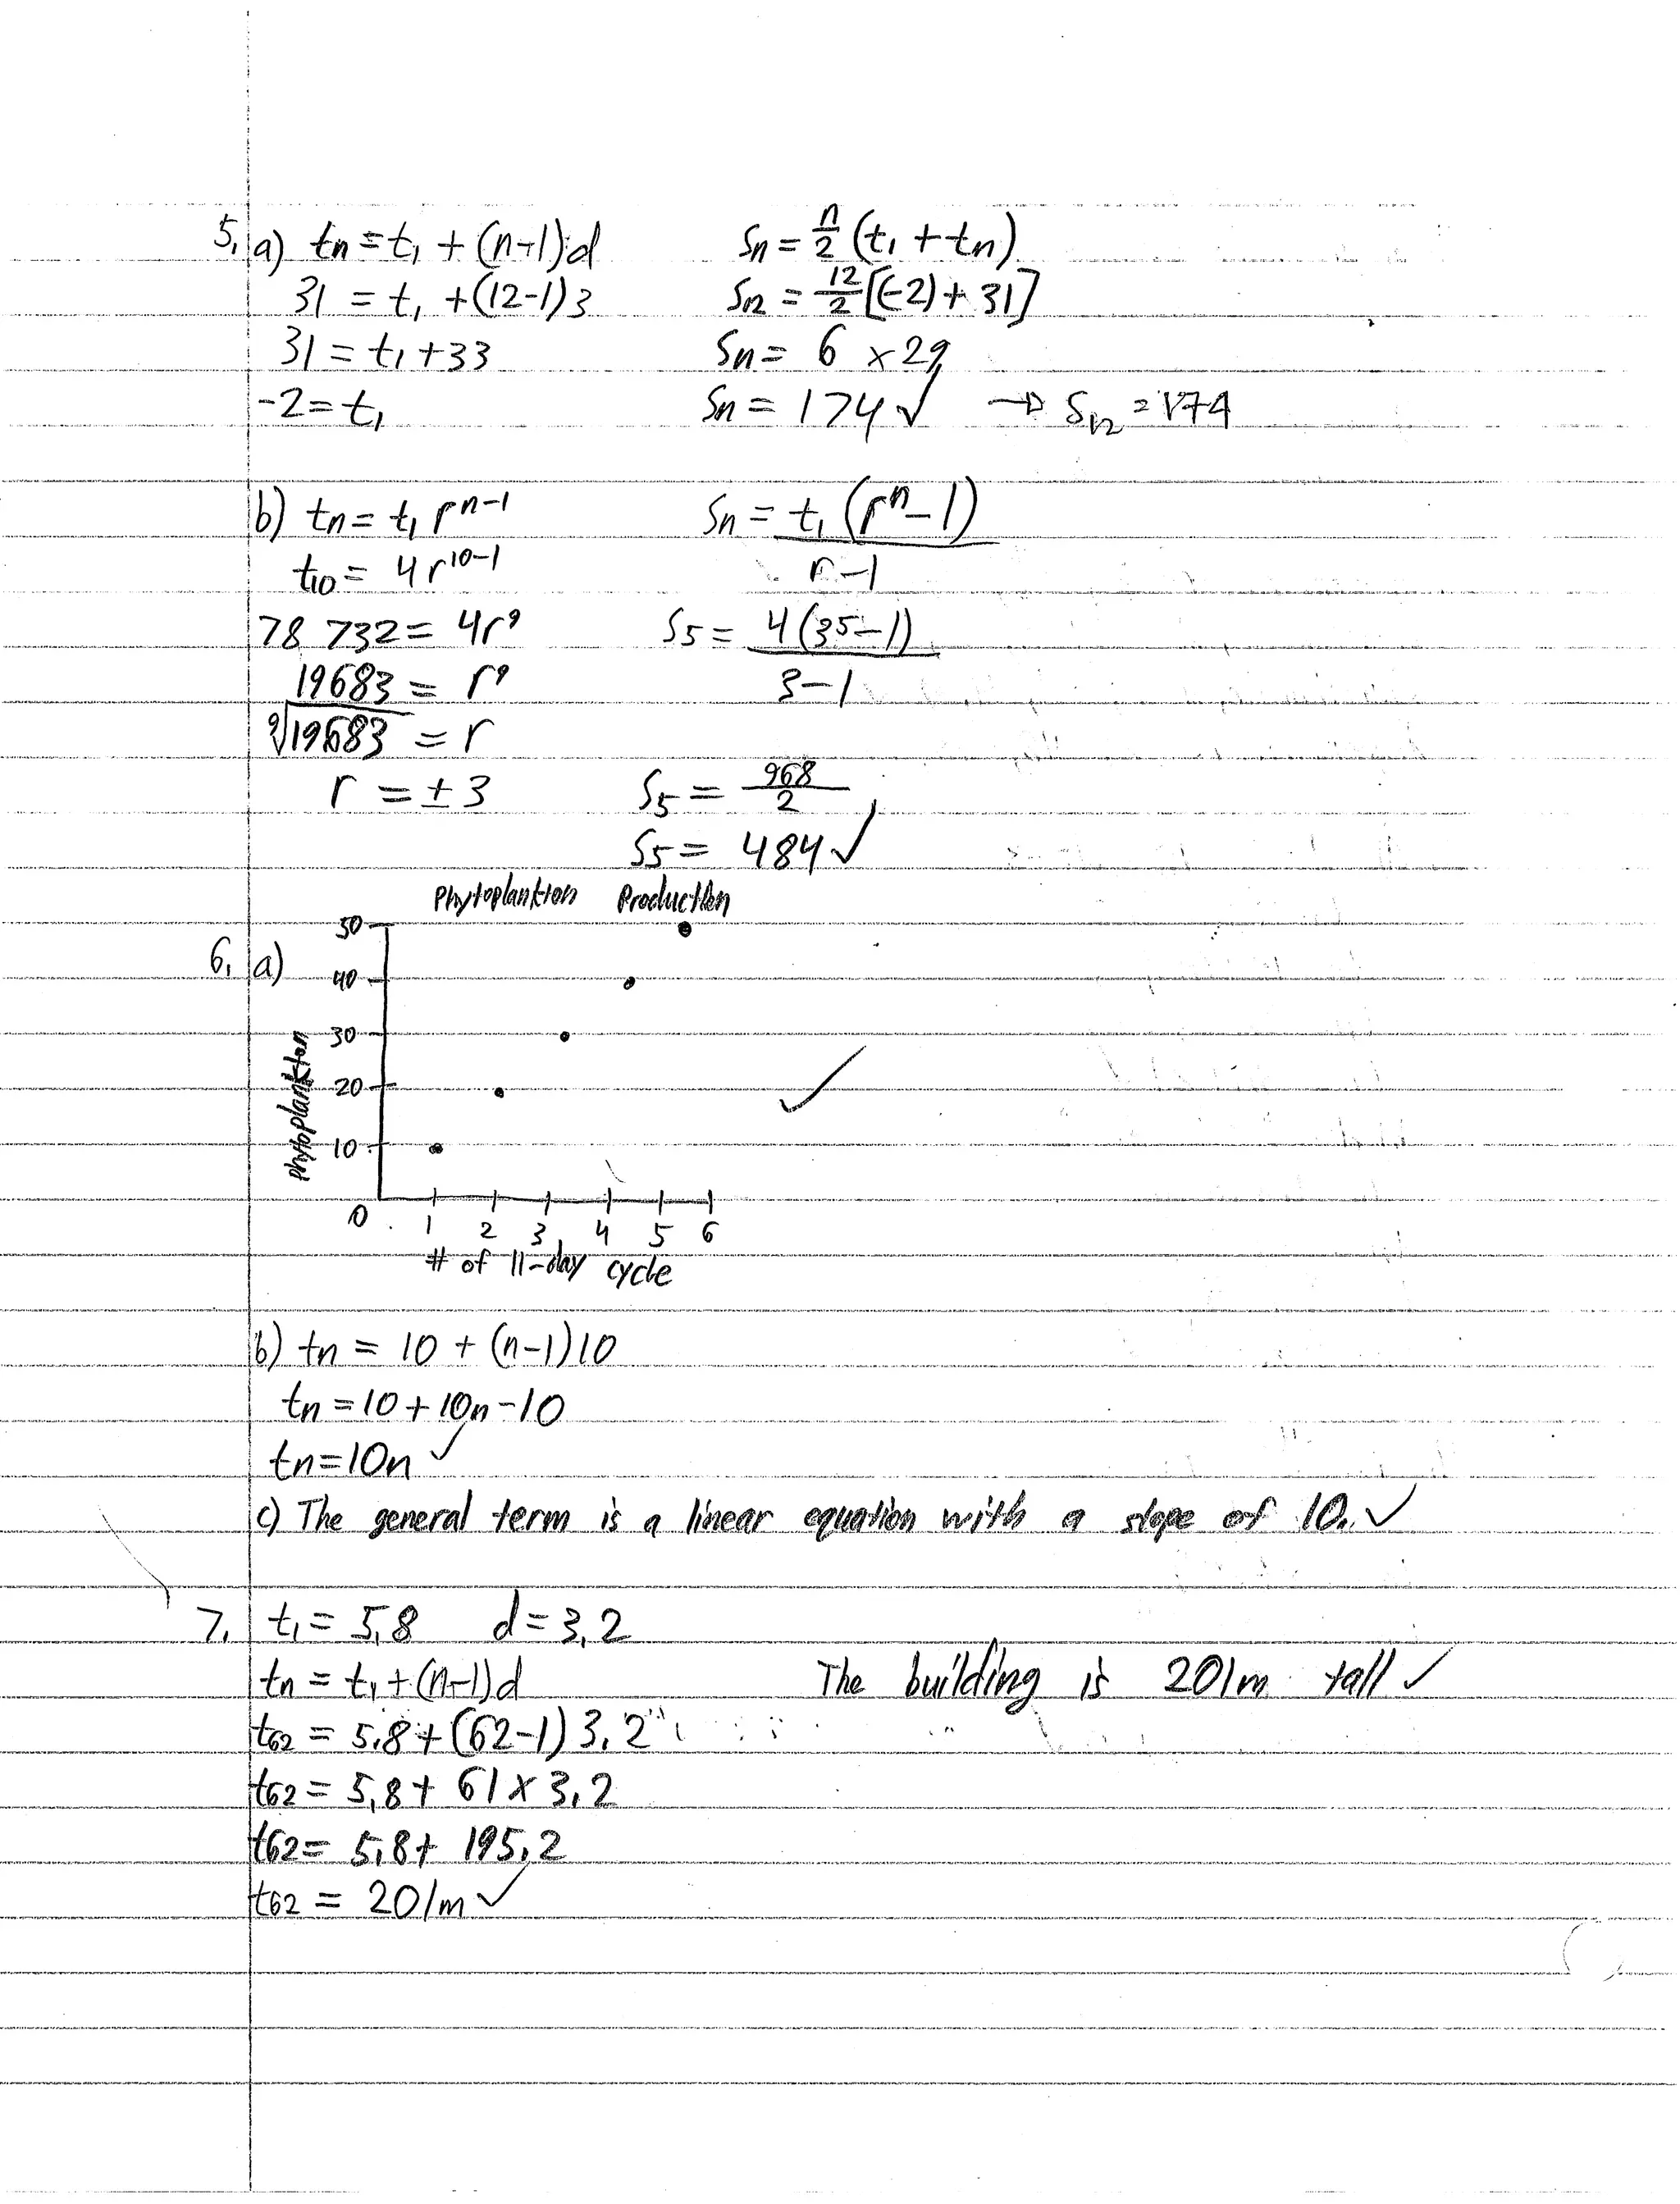 5. a) tn = t₁ + (n-1)d
31 = t₁ + (12-1)3
31 = t₁ + 33
-2 = t₁
Sn = n/2 (t₁ + tn)
S₁₂ = 12/2 [(-2) + 31]
Sn = 6 × 29
Sn = 174 ✓ → S₁₂ = 174
b) tn = t₁ rⁿ⁻¹
t₁₀ = 4r¹⁰⁻¹
78 732 = 4r⁹
19683 = r⁹
⁹√19683 = r
r = ± 3
Sn = t₁ (rⁿ - 1) / r - 1
S₅ = 4 (3⁵ - 1) / 3 - 1
S₅ = 968 / 2
S₅ = 484 ✓
6. a)
Phytoplankton Production
50
40
30
20
10
0 1 2 3 4 5 6
Phytoplankton
# of 11-day cycle
✓
b) tn = 10 + (n-1)10
tn = 10 + 10n - 10
tn = 10n ✓
c) The general term is a linear equation with a slope of 10. ✓
7. t₁ = 5.8 d = 3.2
tn = t₁ + (n-1)d
t₆₂ = 5.8 + (62-1) 3.2
t₆₂ = 5.8 + 61 × 3.2
t₆₂ = 5.8 + 195.2
t₆₂ = 201m ✓
The building is 201m tall ✓